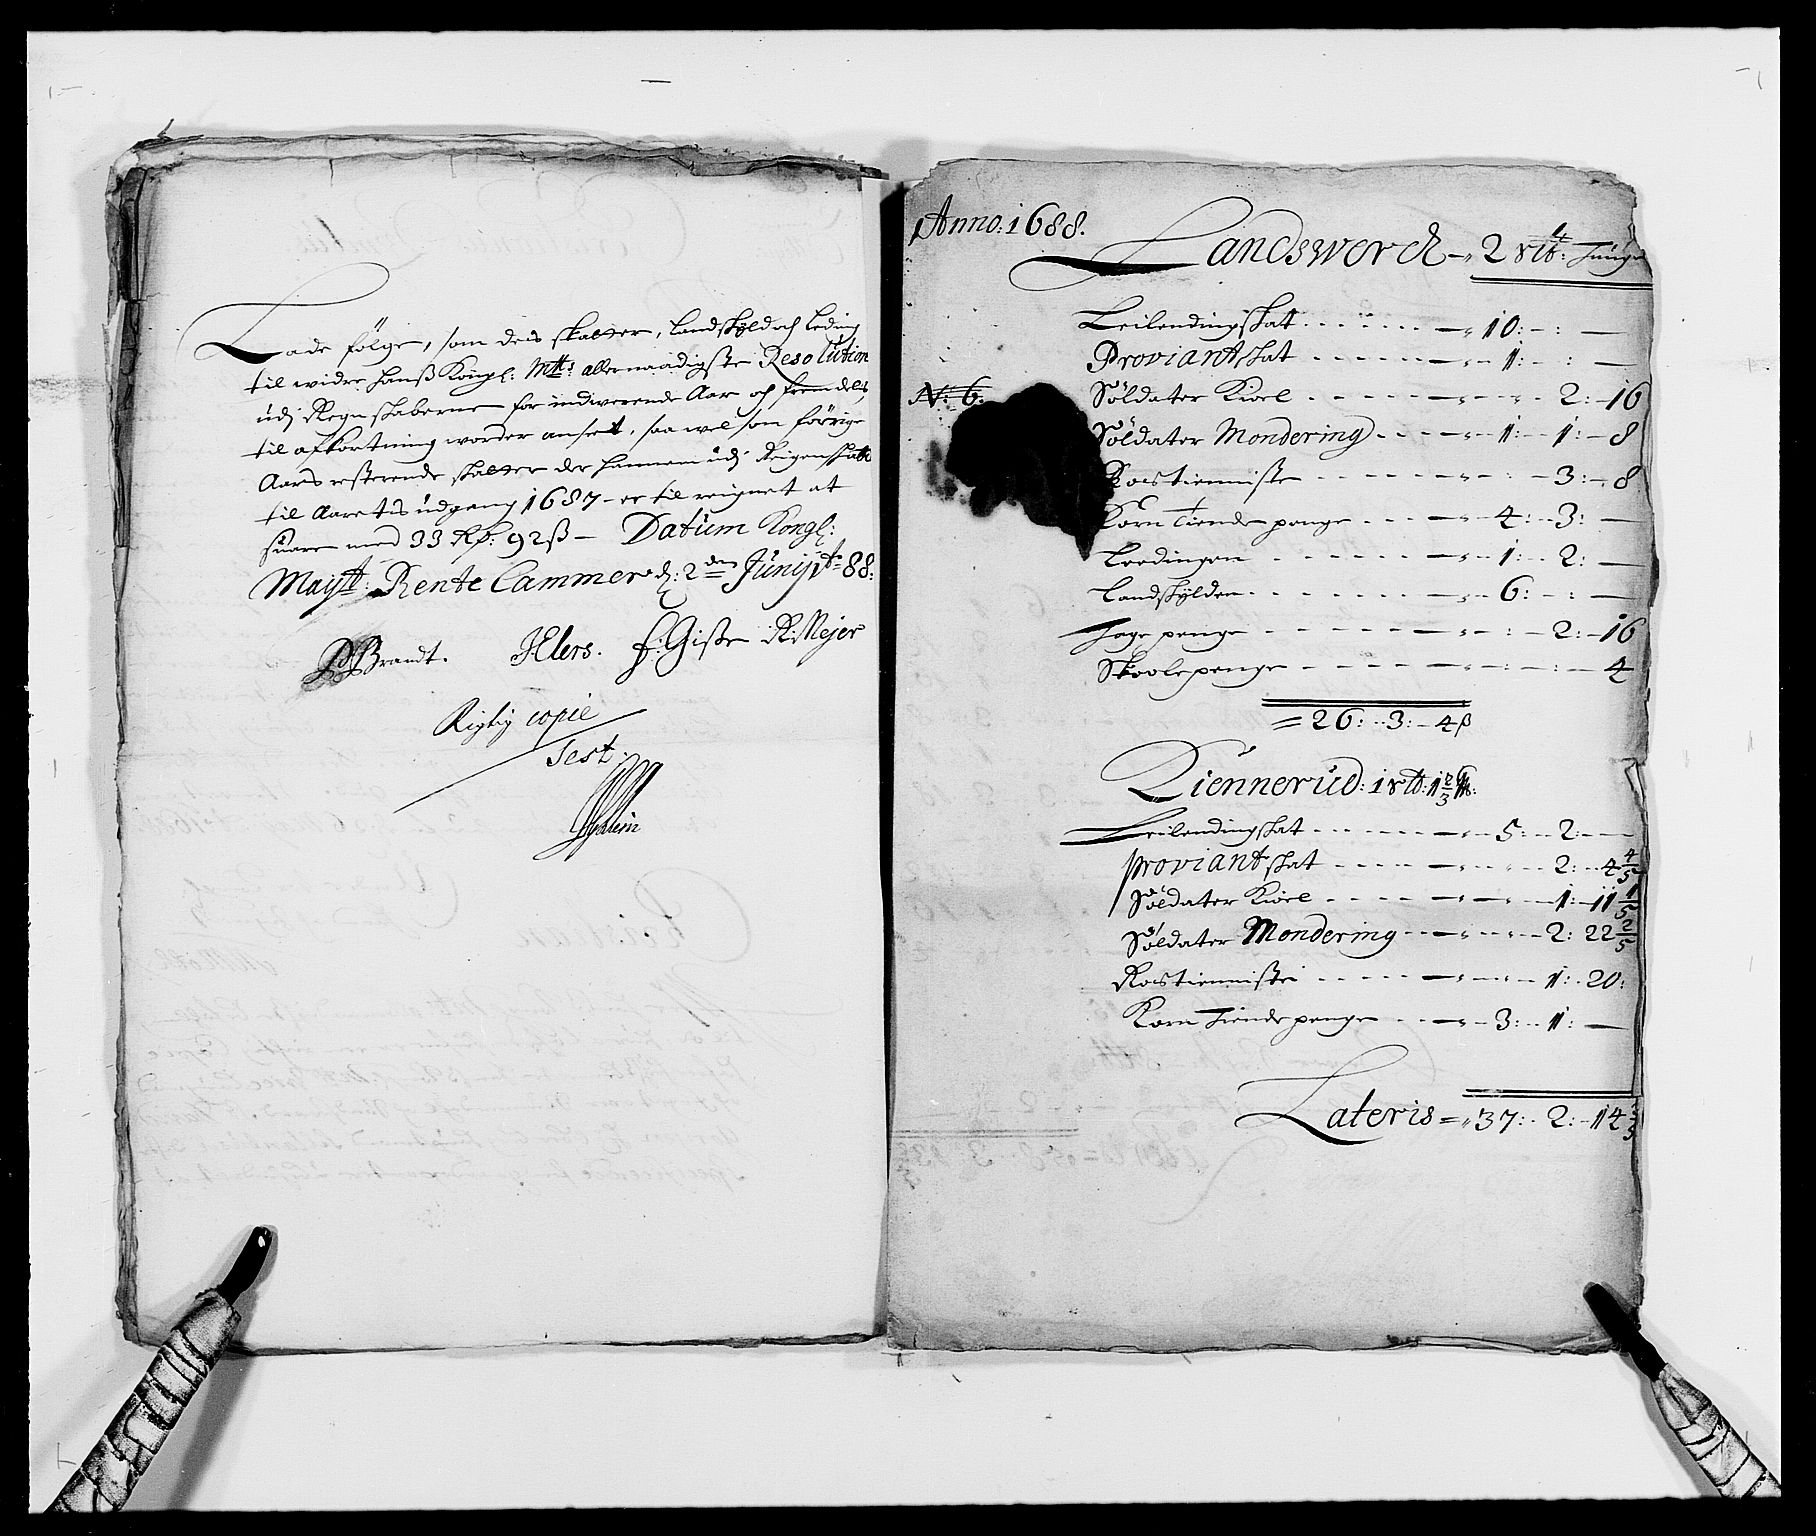 Lade følge, som deis skatter, landskyld och leding
til widre hanß Kongl: Mtts: allernaadigste Resolution
udj Regnskaberne for indwerende Aar och fremdelis,
til afkortning worder anset, saa wel som förrige
Aars resterende skatter der hannem udj Reigenskab
til Aaretis udgang 1687 – er til reignet at
suare med 33 Rd: 92ß – Datum Kongl:
Maytt: Rente Cammer d: 2den Junij Ao 88:
PBrandt. HElers. f: Giße R: Mejer
Rigtig copie
Test.
Anno: 1688.
Landswerch – 2 rtb:
Leilendingskat – 10: – : –
Proviantskat – 1: – : –
N: 6:
Söldater Kioel – 2: – 16
Söldater Mondering – 1: – 1: – 8
Rostienniste – 3: – 8
Korn Tiende penge – 4: 3: –
Leedingen – 1: 2: –
Landskylden – 6: – : –
Foge penge – : – 2: – 16
Skoole penge – : – : – 4
= 26: 3: – 4ß
Tiennerüd: 1 rtb: 1 2/3
Leilendingskat – 5: 2: –
proviantskat – 2: 4 4/5
Söldater Kioel – 1: 11 1/5
Söldater Mondering – 2: 22 2/5
Rostienniste – 1: 20:
Korn Tiende penge – 3: 1: –
Lateris = 37: 2: – 14 2/5